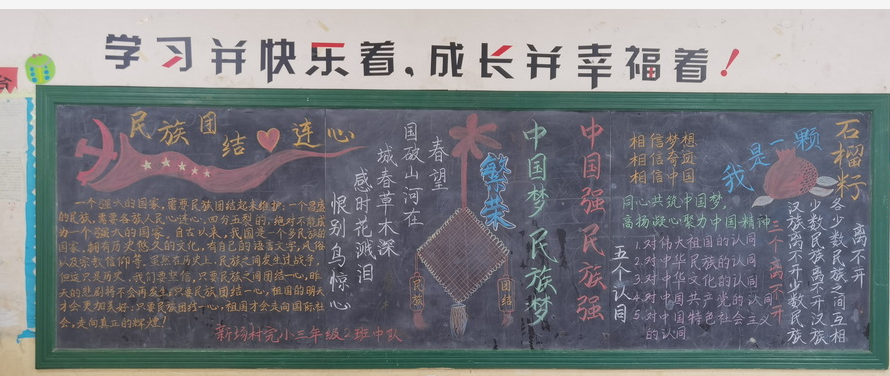 学习并快乐着、成长并幸福着！
民族团
结 连心
一个强大的国家，需要民族团结起来维护；一个温虚
的民族，需要各族人民心连心；四分五裂的，绝对不能成
为一个强大的国家，自古以来，我国是一个多民族的
国家，拥有历史悠久的文化，有自己的语言文字，风俗
以及宗教信仰等。虽然在历史上，民族之间发生过战争，
但这只是历史，我们要坚信，只要民族之间团结一心，昨
天的悲剧将不会再发生，只要民族团结一心，祖国的明天
才会更加美好；只要民族团结一心，祖国才会走向国际社
会，走向真正的辉煌！
新场村完小三年级2班中队
春望
国破山河在
城春草木深
感时花溅泪
恨别鸟惊心
繁荣
民族
团结
中国梦 民族梦
中国强 民族强
相信梦想
相信奇迹
相信中国
同心共筑中国梦，
高扬凝心聚力中国精神
五个认同
1.对伟大祖国的认同
2.对中华民族的认同
3.对中华文化的认同
4.对中国共产党的认同
5.对中国特色社会主义
的认同
我是一颗
石榴籽
三个离不开
汉族离不开少数民族
少数民族离不开汉族
各少数民族之间互相
离不开